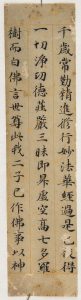 千歲常勤精進修行妙法華經過是已後得
一切淨功德莊嚴三昧即昇虛空高七多羅
樹而白佛言世尊此我二子已作佛事以神